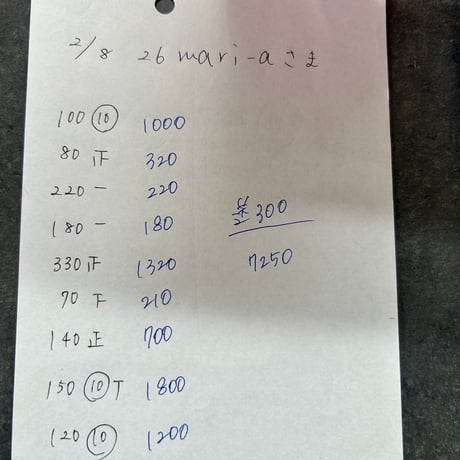 2/8 26 mari-aさま
100 ⑩ 1000
80 正 320
220 一 220
180 一 180
330 正 1320
70 下 210
140 正 700
150 ⑩ T 1800
120 ⑩ 1200
300
7250